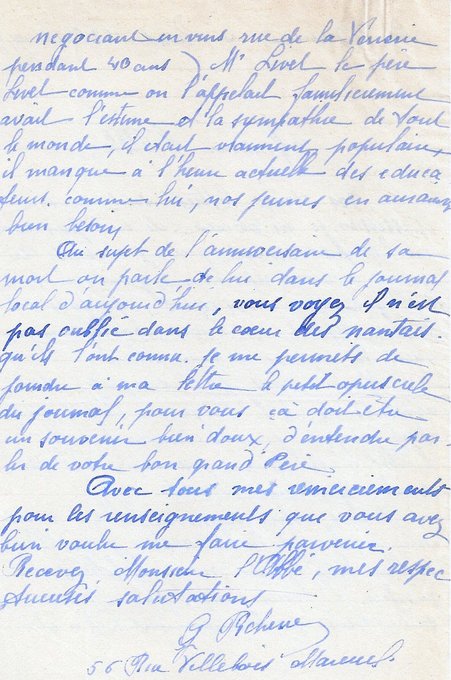 negociant en vins rue de la Verrerie
pendant 40 ans) Mr Livet le père
Livet comme on l'appelait familierement
avait l'estime et la sympathie de tout
le monde, il était vraiment populaire,
il manque à l'heure actuelle des educa
teurs comme lui, nos jeunes en auraient
bien besoin
Au sujet de l'anniversaire de sa
mort on parle de lui dans le journal
local d'aujourd'hui, vous voyez il n'est
pas oublié dans le coeur des nantais.
qu'ils l'ont connu. je me permets de
joindre à ma lettre le petit opuscule
du journal, pour vous çà doit être
un souvenir bien doux, d'entendre par-
ler de votre bon grand Père
Avec tous mes remerciements
pour les renseignements que vous avez
bien voulu me faire parvenir.
Recevez Monsieur l'Abbé, mes respec
tueuses salutations
G
56 Rue Villebois Mareuil.